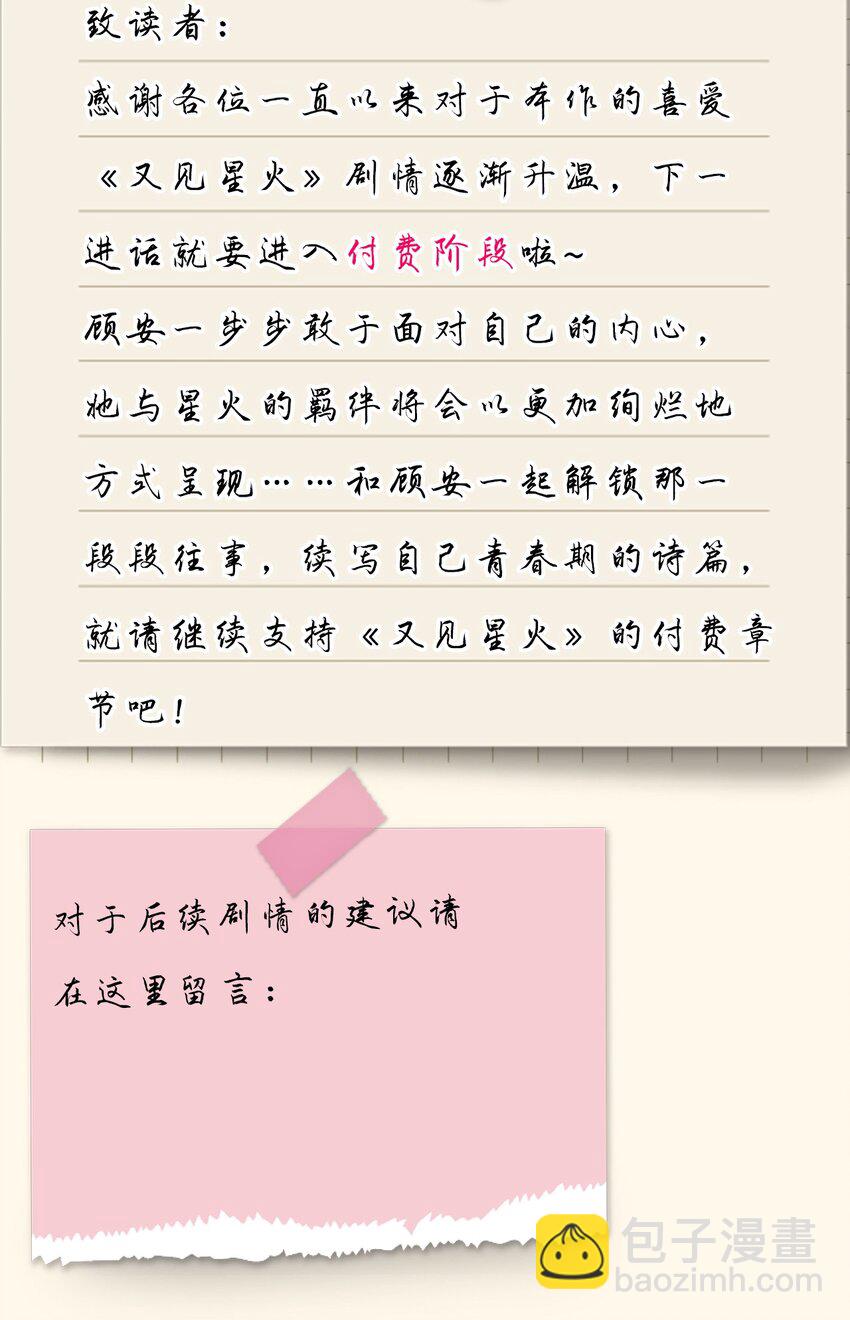 致读者：
感谢各位一直以来对于本作的喜爱
《又见星火》剧情逐渐升温，下一
进话就要进入付费阶段啦~
顾安一步步敢于面对自己的内心，
她与星火的羁绊将会以更加绚烂地
方式呈现……和顾安一起解锁那一
段段往事，续写自己青春期的诗篇，
就请继续支持《又见星火》的付费章
节吧！
对于后续剧情的建议请
在这里留言：
包子漫畫
baozimh.com